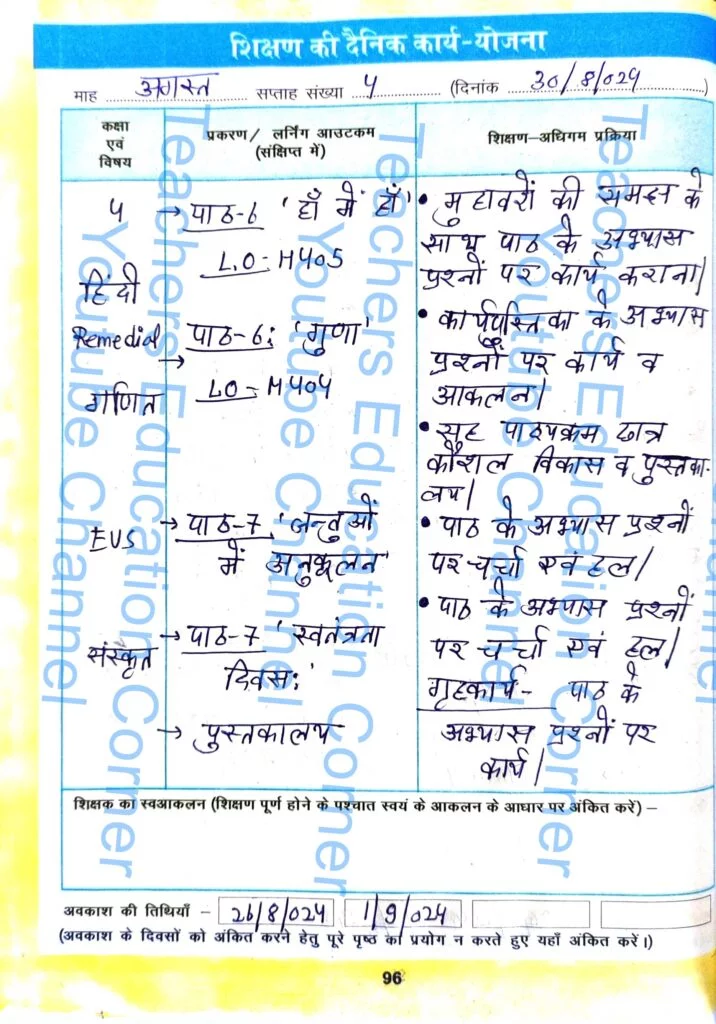 शिक्षण की दैनिक कार्य-योजना
माह अगस्त सप्ताह संख्या 4 (दिनांक 30/8/024)
कक्षा एवं विषय
प्रकरण/ लर्निंग आउटकम (संक्षिप्त में)
शिक्षण-अधिगम प्रक्रिया
4
हिंदी
Remedial
गणित
EVS
संस्कृत
→ पाठ-6 'हाँ में हाँ'
L.O- H405
पाठ-6: 'गुणा'
→
LO- M404
→ पाठ-7 'जन्तुओं
में अनुकूलन'
→ पाठ-7 'स्वतंत्रता
दिवसः'
→ पुस्तकालय
• मुहावरों की समझ के
साथ पाठ के अभ्यास
प्रश्नों पर कार्य कराना।
• कार्यपुस्तिका के अभ्यास
प्रश्नों पर कार्य व
आकलन।
• सह पाठ्यक्रम छात्र
कौशल विकास व पुस्तका-
लय।
• पाठ के अभ्यास प्रश्नों
पर चर्चा एवं हल।
• पाठ के अभ्यास प्रश्नों
पर चर्चा एवं हल।
गृहकार्य- पाठ के
अभ्यास प्रश्नों पर
कार्य।
शिक्षक का स्वआकलन (शिक्षण पूर्ण होने के पश्चात स्वयं के आकलन के आधार पर अंकित करें) –
अवकाश की तिथियाँ – 26/8/024 1/9/024
(अवकाश के दिवसों को अंकित करने हेतु पूरे पृष्ठ का प्रयोग न करते हुए यहाँ अंकित करें।)
96
Teachers Education Corner
Youtube Channel
Teachers Education Corner
Youtube Channel
Teachers Education Corner
Youtube Channel